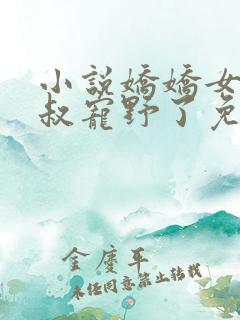 小說嬌嬌女
叔寵野了免
金慶平
未经同意禁止转载